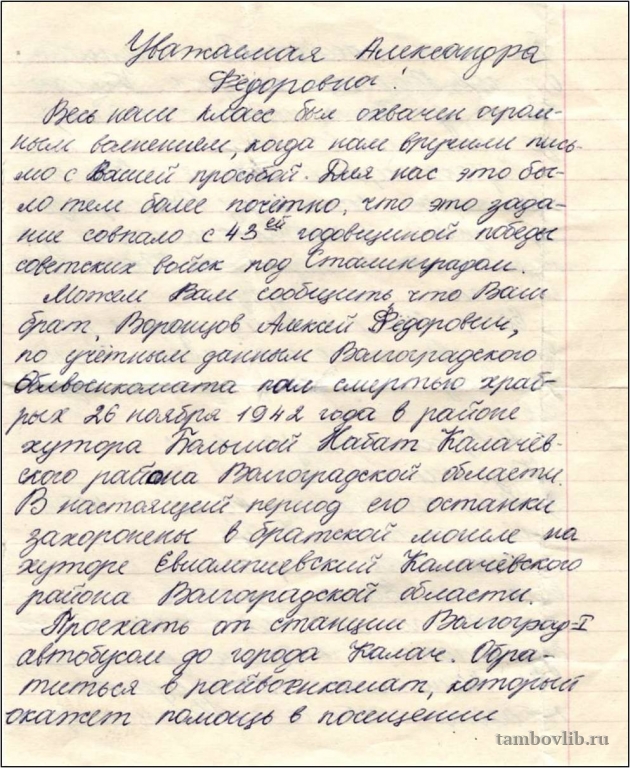 Уважаемая Александра
Фёдоровна!
Весь наш класс был охвачен огром-
ным волнением, когда нам вручили пись-
мо с Вашей просьбой. Для нас это бы-
ло тем более почётно, что это зада-
ние совпало с 43ей годовщиной победы
советских войск под Сталинградом.
Можем Вам сообщить, что Ваш
брат, Воронцов Алексей Фёдорович,
по учётным данным Волгоградского
Облвоенкомата пал смертью храб-
рых 26 ноября 1942 года в районе
хутора Большой Набат Калачёв-
ского района Волгоградской области.
В настоящий период его останки
захоронены в братской могиле на
хуторе Евлампиевский Калачёвского
района Волгоградской области.
Проехать от станции Волгоград-I
автобусом до города Калач. Обра-
титься в райвоенкомат, который
окажет помощь в посещении
tambovlib.ru